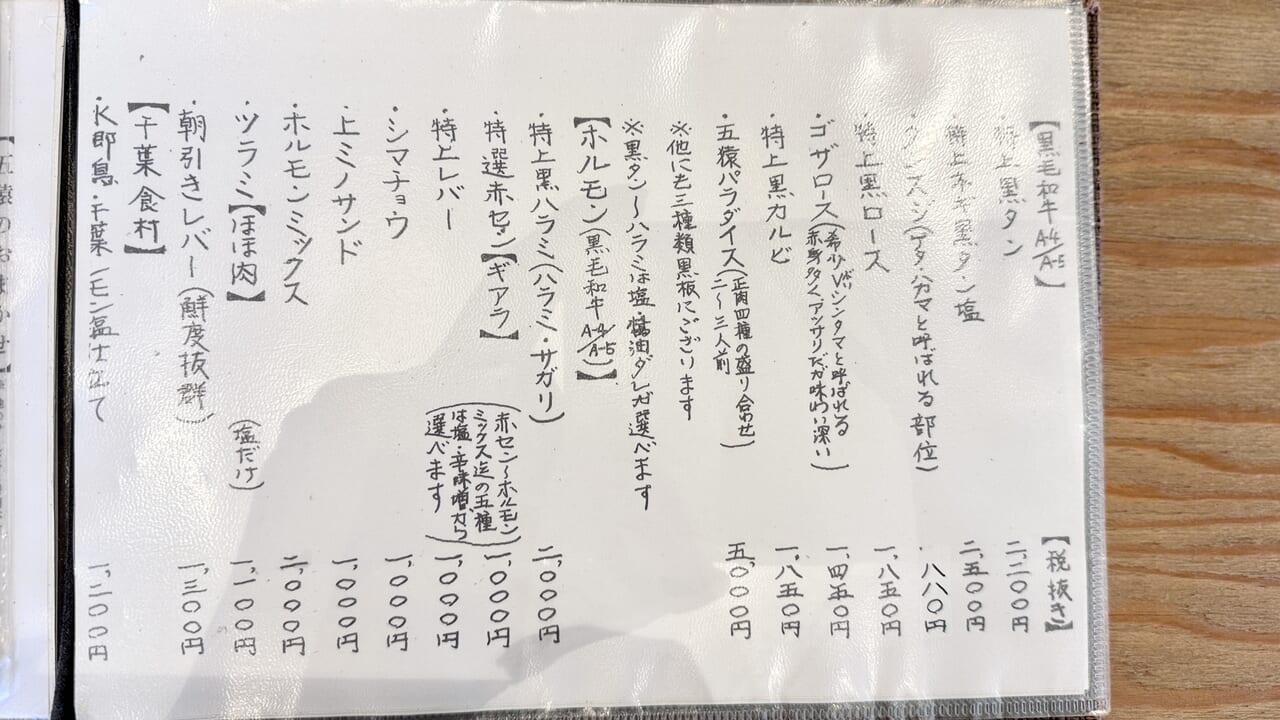 【黒毛和牛 A-4/A-5】
【税抜き】
・特上黒タン 二、二〇〇円
・特上ネギ黒タン塩 二、五〇〇円
(ゲタ・カブリと呼ばれる部位) 八八〇円
・特上黒ロース 一、八五〇円
・ゴザロース(希少、シンタマと呼ばれる
赤身多くアッサリだが味わい深い) 一、四五〇円
・特上黒カルビ 一、八五〇円
・五猿パラダイス(正肉四種の盛り合わせ
二〜三人前) 五、〇〇〇円
※他にも三種類黒板にございます
※黒タン〜ハラミは塩・醤油ダレが選べます
【ホルモン(黒毛和牛 A-4/A-5)】
・特上黒ハラミ(ハラミ・サガリ) 二、〇〇〇円
・特選赤セン【ギアラ】 一、〇〇〇円
・特上レバー 一、〇〇〇円
(赤セン〜ホルモン
ミックス迄の五種
は塩・辛味噌から
選べます)
・シマチョウ 一、〇〇〇円
・上ミノサンド 一、〇〇〇円
・ホルモンミックス 二、〇〇〇円
・ツラミ【ほほ肉】 (塩だけ) 一、一〇〇円
・朝引きレバー(鮮度抜群) 一、三〇〇円
【千葉食村】
・水郎鳥・千葉レモン塩仕立て 一、二〇〇円
【五猿のおまかせ】